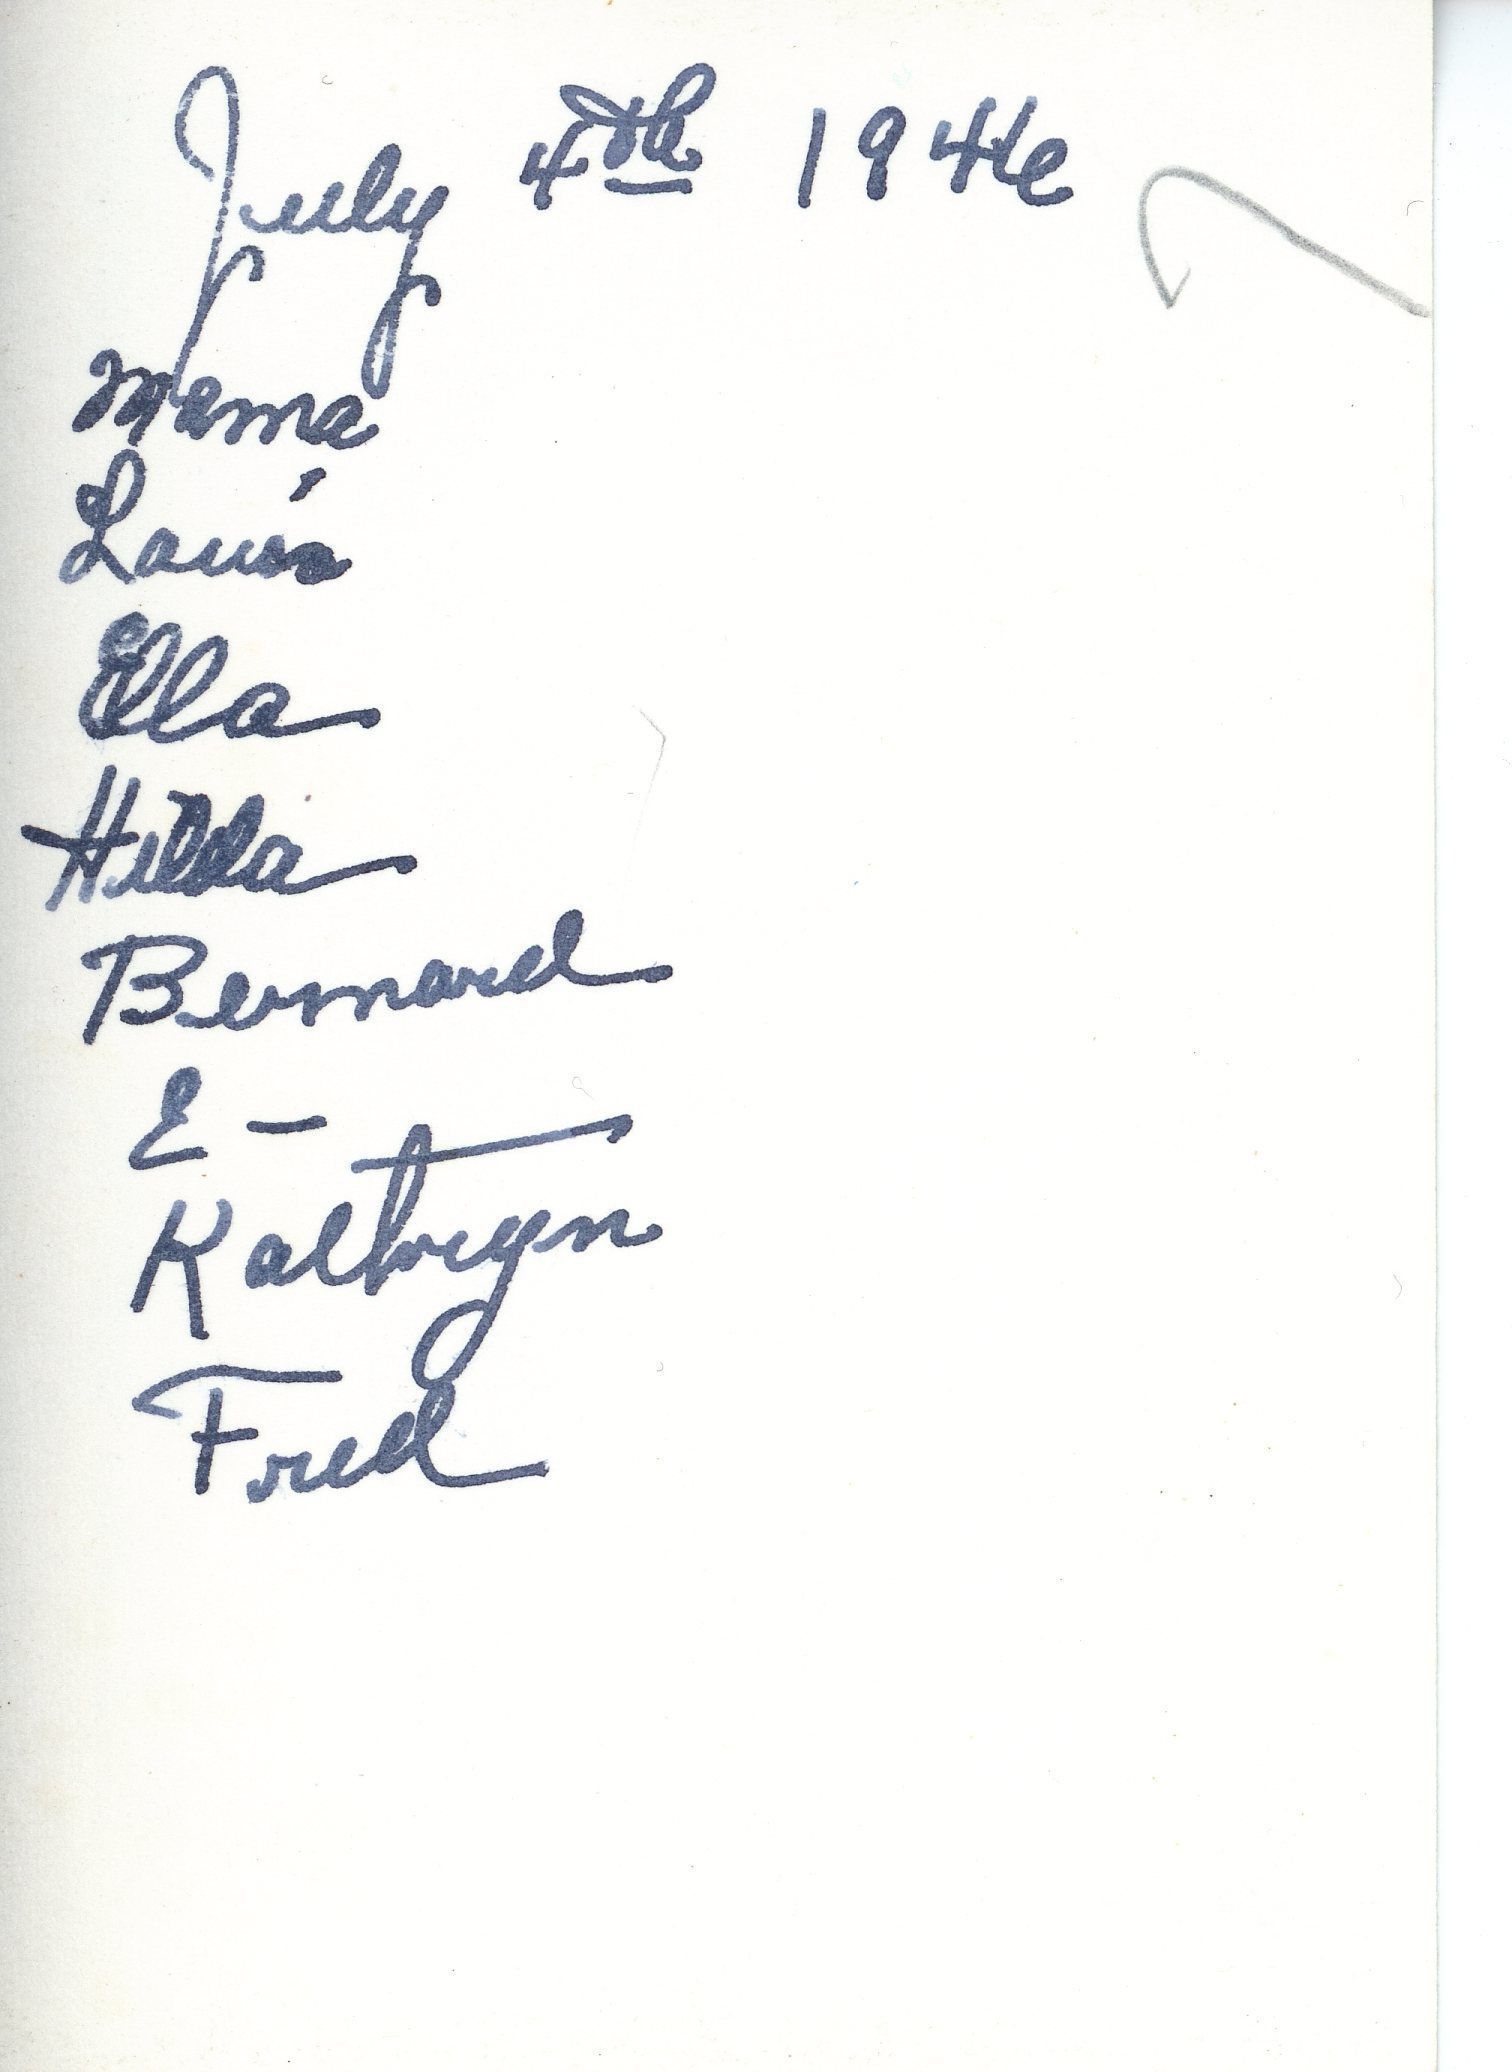 July 4th 1946
Mama
Louis
Ella
Hilda
Bernard
E -
Kathryn
Fred